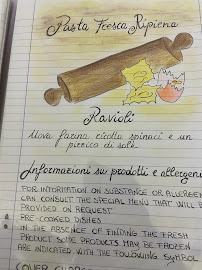 Pasta Fresca Ripiena
Ravioli
Uova farina ricotta spinaci e un
pizzico di sale.
Informazioni su prodotti e allergeni
FOR INFORMATION ON SUBSTANCE OR ALLERGEN
CAN CONSULT THE SPECIAL MENU THAT WILL B
PROVIDED ON REQUEST
PRE-COOKED DISHES
IN THE ABSENCE OF FINDING THE FRESH
PRODUCT SOME PRODUCTS MAY BE FROZEN
ARE INDICATED WITH THE FOLLOWING SYMBOL
COVER CHARGE